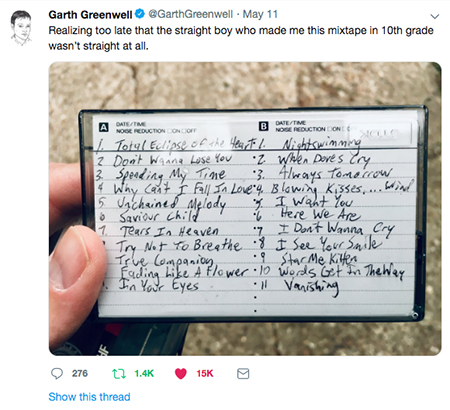 Garth Greenwell @GarthGreenwell · May 11
Realizing too late that the straight boy who made me this mixtape in 10th grade
wasn't straight at all.
A DATE/TIME
NOISE REDUCTION ON OFF
1. Total Eclipse of the Heart
2 Don't Wanna Lose You
3. Spending My Time
4 Why Can't I Fall In Love
5 Unchained Melody
6 Saviour Child
7 Tears In Heaven
Try Not To Breathe
True Companion
Fading Like A Flower
In Your Eyes
B DATE/TIME
NOISE REDUCTION ON OFF
1. Nightswimming
2 When Doves Cry
3. Always Tomorrow
4. Blowing Kisses... Wind
5 I Want You
6 Here We Are
7 I Don't Wanna Cry
8 I See Your Smile
9 Star Me Kitten
10 Words Get In The Way
11 Vanishing
276 1.4K 15K
Show this thread